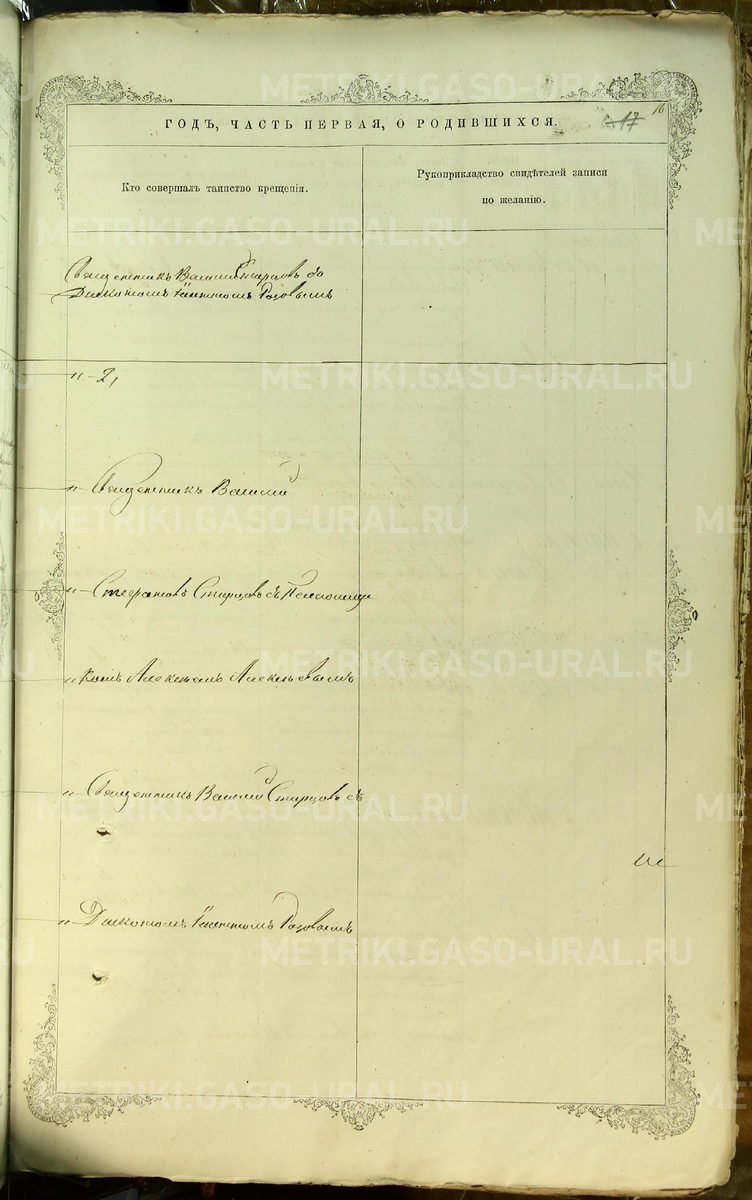 ГОДЪ, ЧАСТЬ ПЕРВАЯ, О РОДИВШИХСЯ.
17
16
Кто совершалъ таинство крещенія.
Рукоприкладство свидѣтелей записи
по желанію.
Священникъ Василій Старцовъ съ
Дьякономъ Іоанномъ Розовымъ
„ – 2,
„ – Священникъ Василій
„ – Стефановъ Старцовъ съ Псаломщи
„ комъ Алексѣемъ Алексѣевымъ
„ – Священникъ Василій Старцовъ съ
„ – Дьякономъ Іоанномъ Розовымъ
METRIKI.GASO-URAL.RU